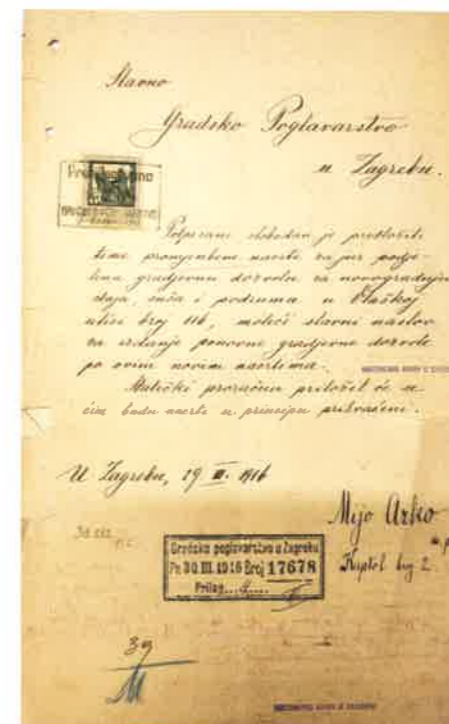 Slavno
Gradsko Poglavarstvo
u Zagrebu.
Potpisani slobodan je predložiti
time promjenbene nacrte za već podje-
ljenu gradjevnu dozvolu za novogradnju
staja, suša i podruma u Vlaškoj
ulici broj 116, moleći slavni naslov
za izdanje ponovne gradjevne dozvole
po ovim novim nacrtima.
Statički proračun priložit će se
čim budu nacrti u principu prihvaćeni.
U Zagrebu, 29 III. 1916
Mijo Arko
Kaptol broj 2.
Gradsko poglavarstvo u Zagrebu
Pr. 30 III. 1916 Broj 17678
Prilog
39
M